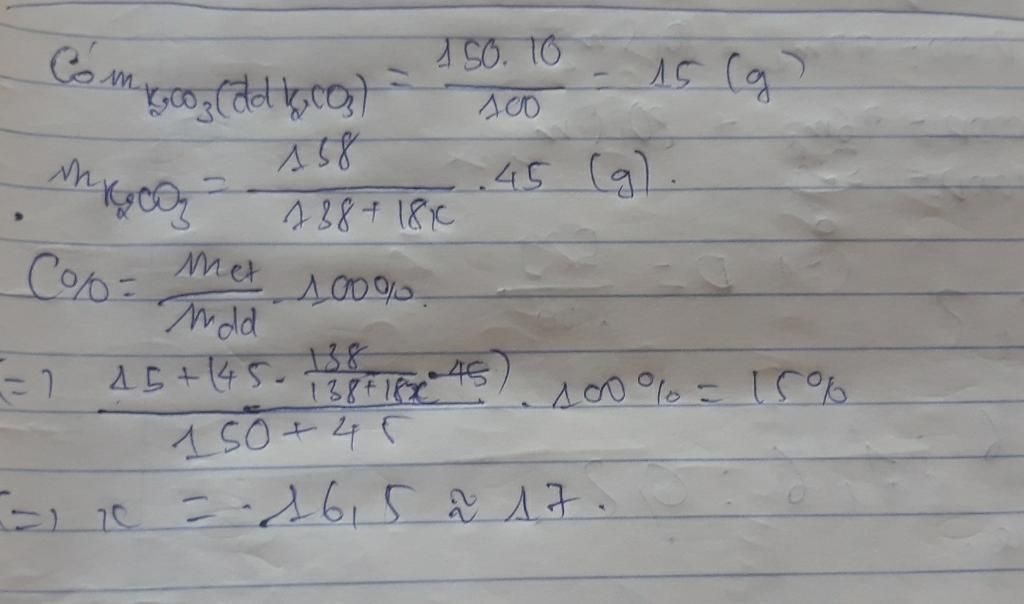 Có m K2CO3 (dd K2CO3) = 150.10 / 100 = 15 (g)
m K2CO3 = 138 / 138+18x .45 (g).
C% = mct / mdd . 100%.
(=) 15 + (45 . 138 / 138+18x . 45) / 150 + 45 . 100% = 15%
(=) x = 16,5 ≈ 17.